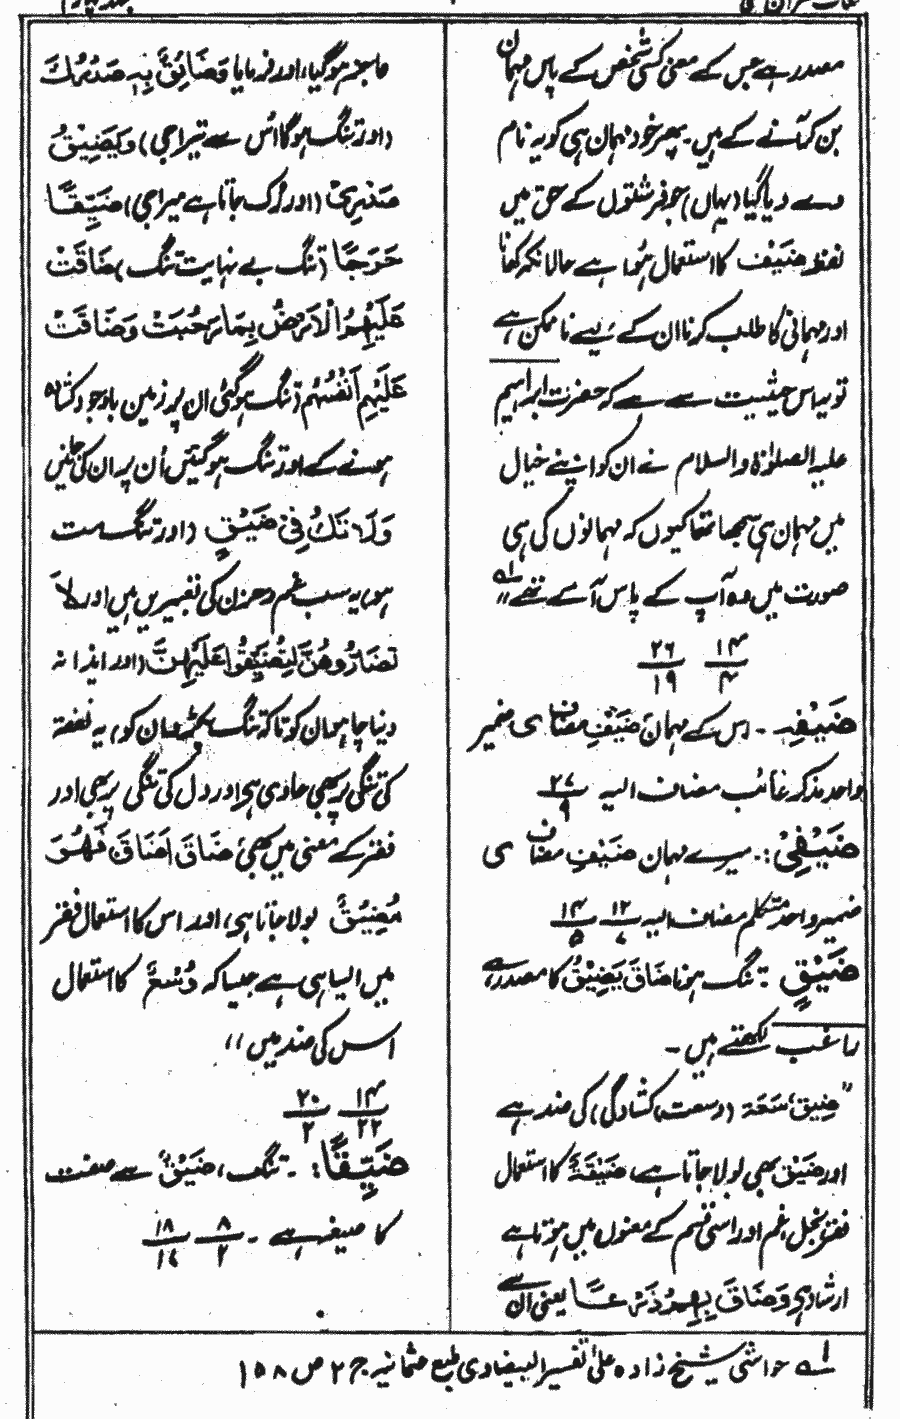 مصدر ہے جس کے معنی کسی شخص کے پاس مہمان
بن کر آنے کے ہیں۔ پھر خود مہمان ہی کو یہ نام
دے دیا گیا (یہاں) جو فرشتوں کے حق میں
لفظ ضَیْف کا استعمال ہوا ہے حالانکہ کھانا
اور مہمانی کا طلب کرنا ان کے لیے ناممکن ہے
تو یہ اس حیثیت سے ہے کہ حضرت ابراہیم
علیہ الصلوٰۃ والسلام نے ان کو اپنے خیال
میں مہمان ہی سمجھا تھا کیوں کہ مہمانوں کی ہی
صورت میں وہ آپ کے پاس آئے تھے ؂۱
۱۴/۴ ۲۶/۱۹
ضَیْفِہٖ۔ اس کے مہمان، ضَیْفِ مضاف ہ ضمیر
واحد مذکر غائب مضاف الیہ ۲۷/۹
ضَیْفِیْ:۔ میرے مہمان ضَیْفِ مضاف ی
ضمیر واحد متکلم مضاف الیہ ۱۲/۷ ۱۴/۵
ضَیْقٍ :۔ تنگ ہونا ضَاقَ یَضِیْقُ کا مصدر ہے،
راغب لکھتے ہیں۔
"ضیق، سَعَۃ (وسعت، کشادگی) کی ضد ہے
اور ضَیْق بھی بولا جاتا ہے، ضَیْقَۃٌ کا استعمال
فقر، بخل، غم اور اسی قسم کے معنوں میں ہوتا ہے
ارشاد ہے وَضَاقَ بِهِمْ ذَرْعًا یعنی ان
عاجز ہو گیا، اور فرمایا وَضَائِقٌ بِہٖ صَدْرُكَ
(اور تنگ ہوگا اُس سے تیرا جی) وَیَضِیْقُ
صَدْرِیْ (اور رُک جاتا ہے میرا جی) ضَیِّقًا
حَرَجًا (تنگ بے نہایت تنگ) ضَاقَتْ
عَلَیْهِمُ الْاَرْضُ بِمَا رَحُبَتْ وَضَاقَتْ
عَلَیْهِمْ اَنْفُسُهُمْ (تنگ ہو گئی ان پر زمین باوجود کشادہ
ہونے کے اور تنگ ہو گئیں اُن پر ان کی جانیں
وَلَا تَكُ فِیْ ضَیْقٍ (اور تنگ مت
ہو، یہ سب غم و حزن کی تعبیریں ہیں اور لَا
تُضَارُّوهُنَّ لِتُضَیِّقُوا عَلَیْهِنَّ (اور ایذا نہ
دینا چاہو ان کو تاکہ تنگ پکڑو ان کو) یہ نفقہ
کی تنگی پر بھی حاوی ہے اور دل کی تنگی پر بھی اور
فقر کے معنی میں بھی، ضَاقَ اَضَاقَ فَهُوَ
مُضِیْقٌ بولا جاتا ہے، اور اس کا استعمال فقر
میں ایسا ہی ہے جیسا کہ وُسْعٌ کا استعمال
اس کی ضد میں"
۱۴/۲۲ ۲۰/۲
ضَیِّقًا: ۔ تنگ، ضَیْقٌ سے صفت
کا صیغہ ہے۔ ۸/۲ ۱۸/۱۷
؂۱ حواشی شیخ زادہ علیٰ تفسیر البیضاوی طبع عثمانیہ ج ۲ ص ۱۵۸